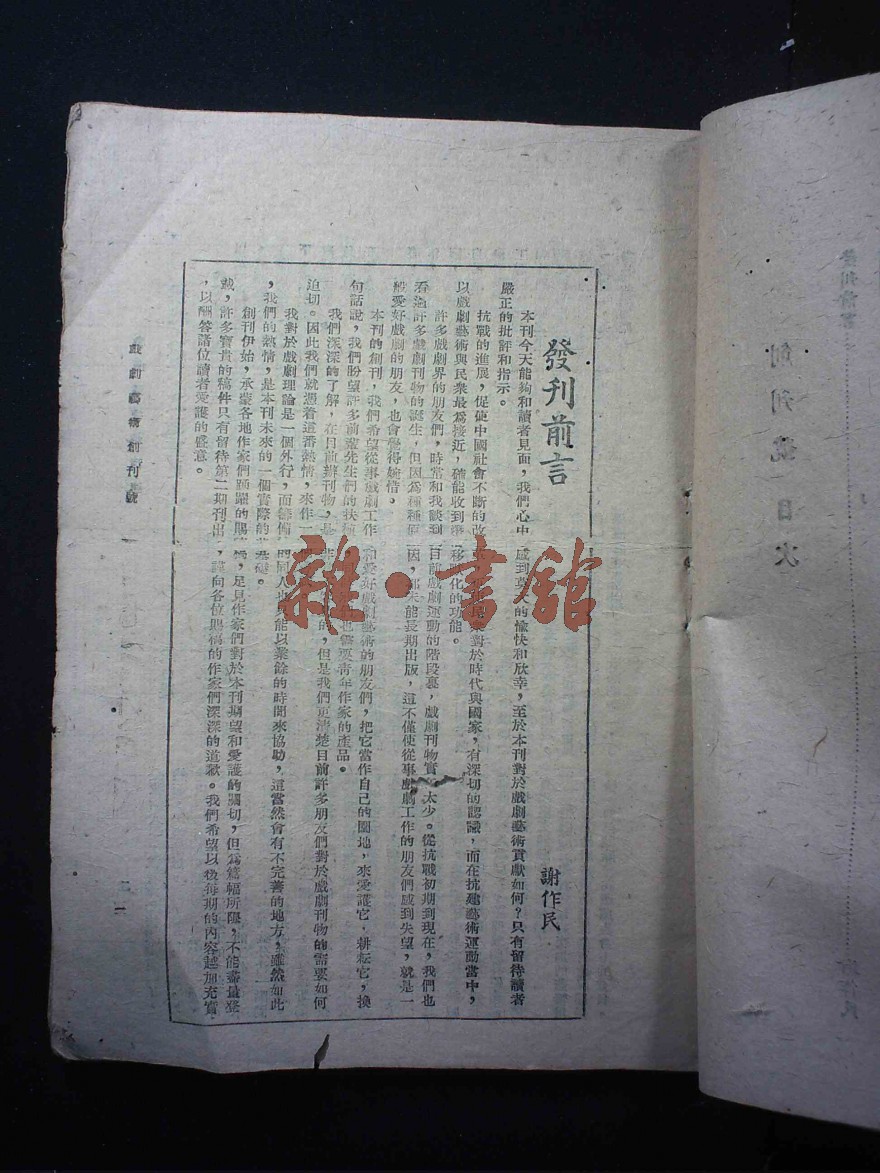 創刊號目次
發刊前言
謝作民
本刊今天能夠和讀者見面，我們心中感到莫的愉快和欣幸，至於本刊對於戲劇藝術貢獻如何？只有留待讀者
嚴正的批評和指示。
抗戰的進展，促使中國社會不斷的改對於時代與國家，有深切的認識，而在抗建藝術運動當中，
以戲劇藝術與民衆最為接近，確能收到潛移默化的功能。
許多戲劇界的朋友們，時常和我談到目前戲劇運動的階段裏，戲劇刊物實太少。從抗戰初期到現在，我們也
看過許多戲劇刊物的誕生，但因為種種原因，都未能長期出版，這不僅使從事戲劇工作的朋友們感到失望，就是一
般愛好戲劇的朋友，也會覺得惋惜。
本刊的創刊，我們希望從事戲劇工作和愛好戲劇藝術的朋友們，把它當作自己的園地，來愛護它，耕耘它，換
句話說，我們盼望許多前輩先生們的扶植也需要青年作家的產品。
我們深深的了解，在目前辦刊物，是的，但是我們更清楚目前許多朋友們對於戲劇刊物的需要如何
迫切。因此我們就憑着這番熱情，來作一個
我對於戲劇理論是一個外行，而籌備的同人也只能以業餘的時間來協助，這當然會有不完善的地方，雖然如此
，我們的熱情，是本刊未來的一個實際的基礎。
創刊伊始，承蒙各地作家們踴躍的賜稿，足見作家們對於本刊期望和愛護的關切，但為篇幅所限，不能盡量登
載，許多寶貴的稿件只有留待第二期刊出，謹向各位賜稿的作家們深深的道歉。我們希望以後每期的內容越加充實
，以酬答諸位讀者愛護的盛意。
戲劇藝術創刊號
雜·書館